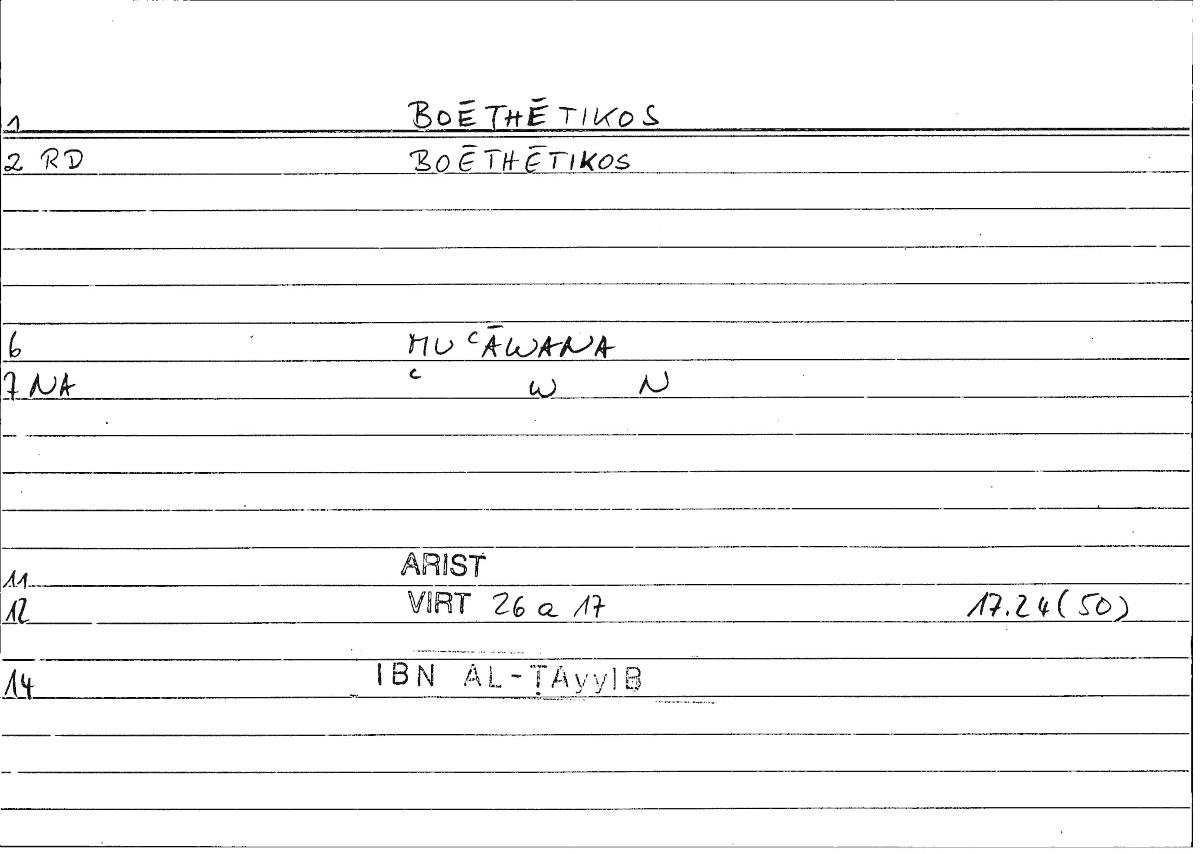 1 BOĒTHĒTIKOS
2 RD BOĒTHĒTIKOS
6 MU ͨĀWANA
7 NA ͨ W N
11 ARIST
12 VIRT 26 a 17 17.24(50)
14 IBN AL-ṬAyyIB